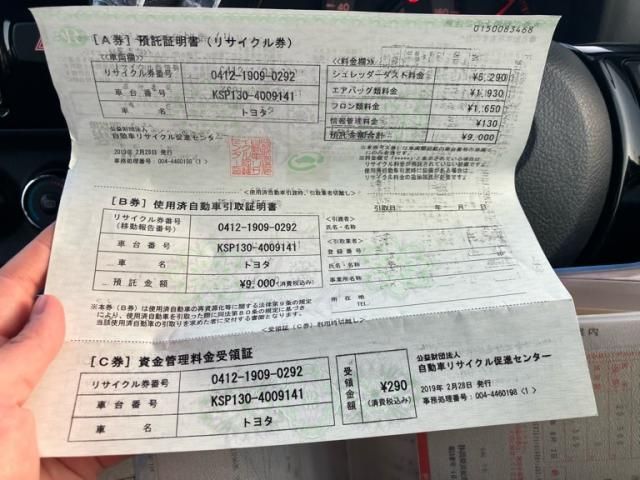 0150083468
[A券] 預託証明書 (リサイクル券)
<車両欄>
リサイクル券番号 0412-1909-0292
車台番号 KSP130-4009141
車名 トヨタ
公益財団法人
自動車リサイクル促進センター
2019年 2月28日 発行
事務処理番号:004-4460198〈1〉
<料金欄>
シュレッダーダスト料金 ¥5,290
エアバッグ類料金 ¥1,930
フロン類料金 ¥1,650
情報管理料金 ¥130
預託金額合計 ¥9,000
<使用済自動車引渡時、引取業者切離し>
[B券] 使用済自動車引取証明書
引取日 年 月 日
リサイクル券番号
(移動報告番号) 0412-1909-0292
車台番号 KSP130-4009141
車名 トヨタ
預託金額 ¥9,000(消費税込み)
<引渡者>
氏名・名称
<引取業者>
登録番号
氏名・名称
事業所名称
所在地
TEL
※本券(B券)は使用済自動車の再資源化等に関する法律第9条の規定
により、使用済自動車を引取った際に同法第80条の規定に基づき
当該使用済自動車の引取りを求めた者に交付する書面となります。
<受領証(C券)利用時切離し>
[C券] 資金管理料金受領証
リサイクル券番号 0412-1909-0292
車台番号 KSP130-4009141
車名 トヨタ
受領金額 ¥290
(消費税込み)
公益財団法人
自動車リサイクル促進センター
2019年 2月28日 発行
事務処理番号:004-4460198〈1〉